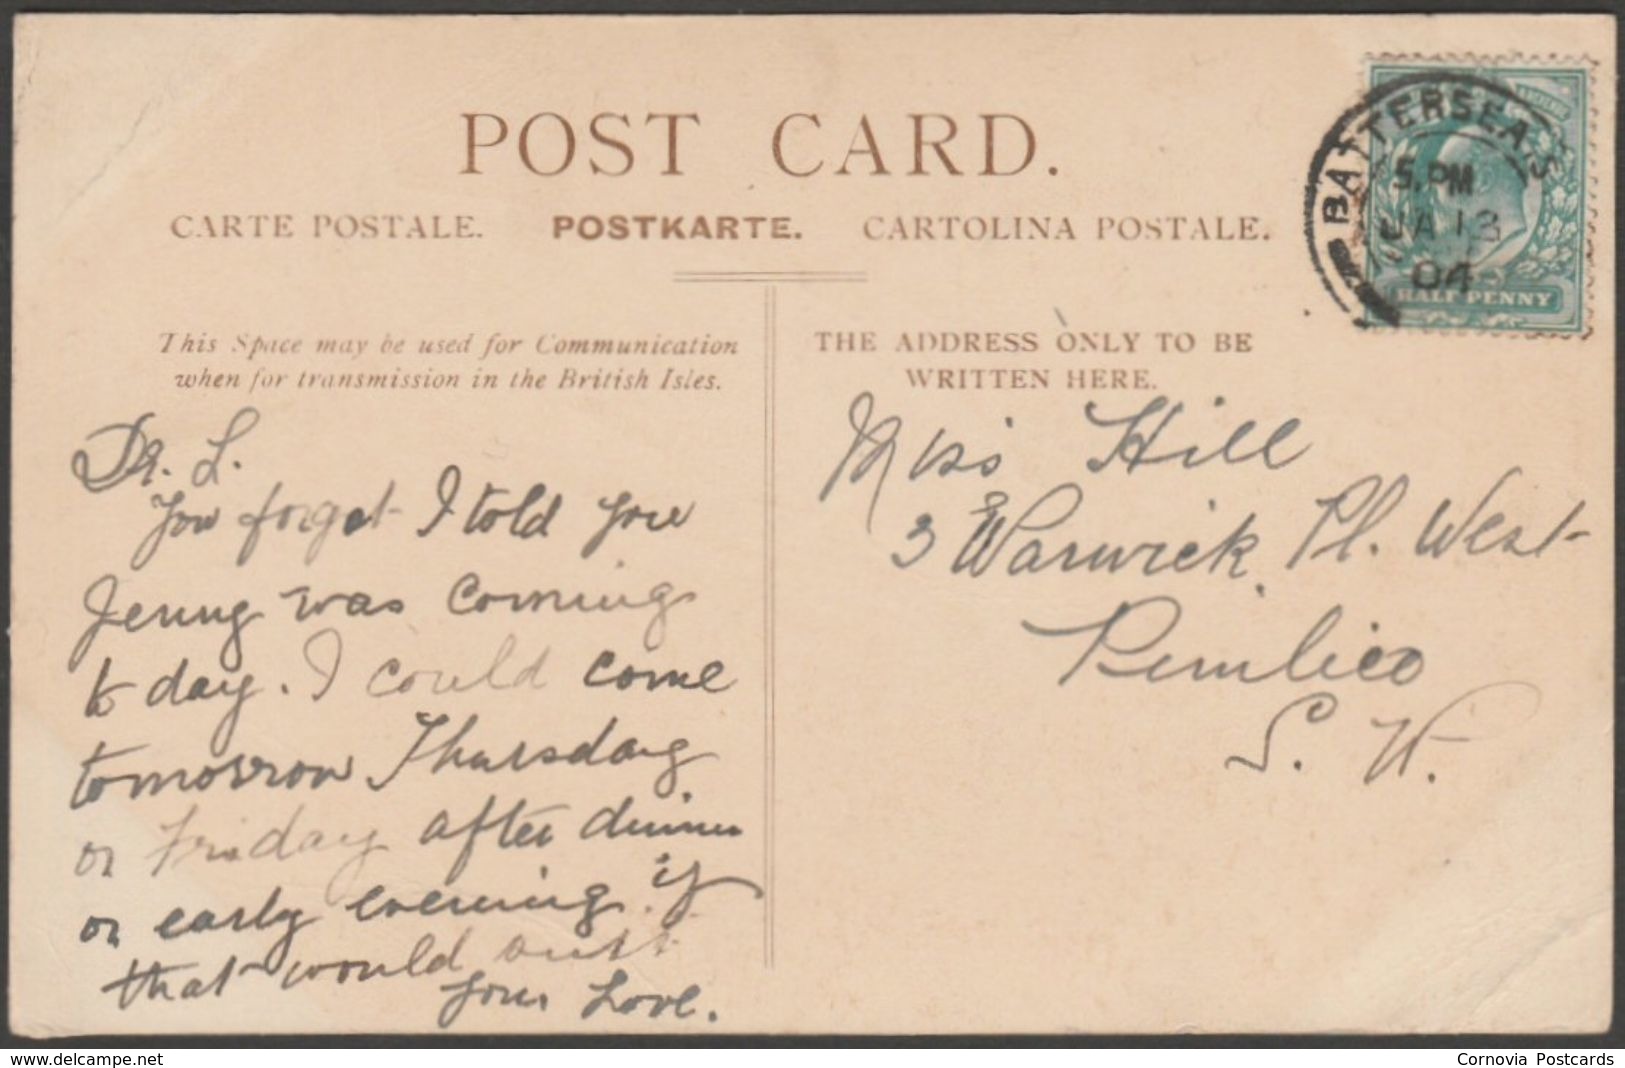 POST CARD.
CARTE POSTALE. POSTKARTE. CARTOLINA POSTALE.
This Space may be used for Communication
when for transmission in the British Isles.
THE ADDRESS ONLY TO BE
WRITTEN HERE.
BATTERSEA. S
5. PM
JA 13
04
HALF PENNY
Dr. L.
You forget I told you
Jenny was coming
to day. I could come
tomorrow Thursday
or Friday after dinner
or early evening if
that would suit
your Love.
Miss Hill
3 Warwick Pl. West
Pimlico
S. W.
delcampe.net
Cornovia Postcards